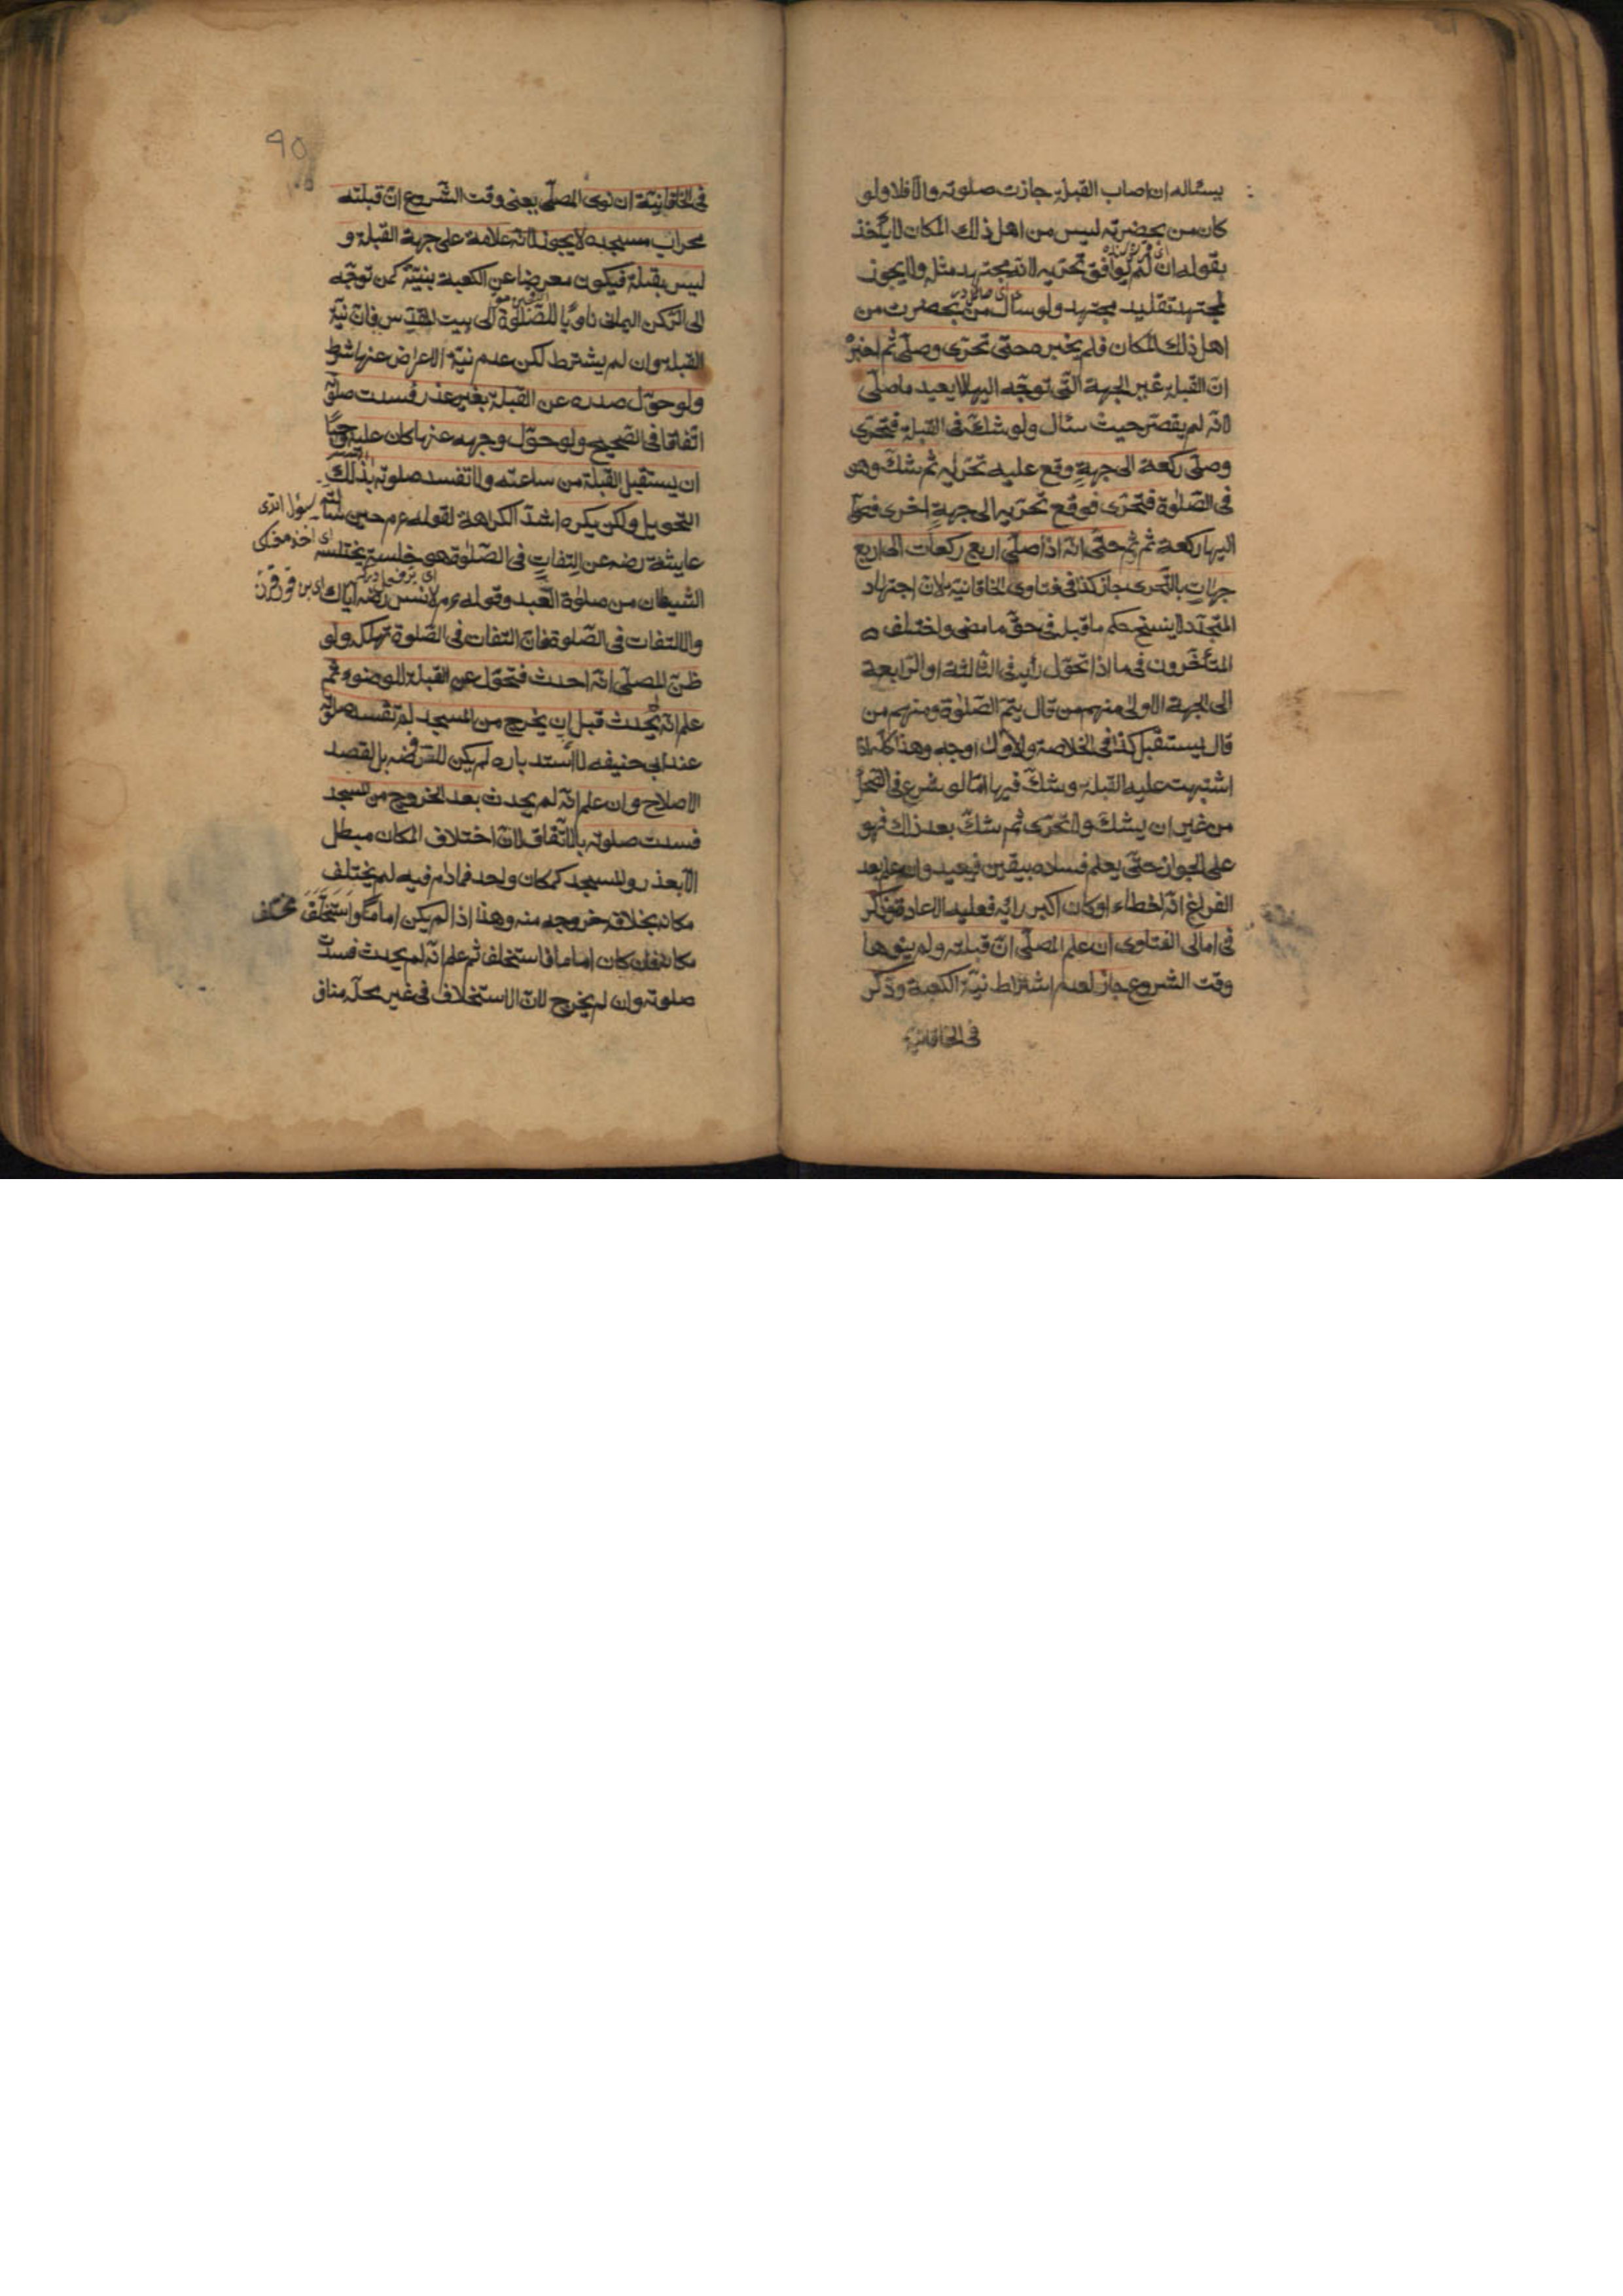 يسئاله ان اصاب القبلة جازت صلوته والا فلا ولو
كان من بحضرته ليس من اهل ذلك المكان لا يأخذ
بقوله ان لم يوافق تحريه لانه مجتهد مثله ولا يجوز
لمجتهد تقليد مجتهد ولو سأل من بحضرت من
اهل ذلك المكان فلم يخبره حتى تحرى وصلى ثم اخبره
ان القبلة غير الجهة التى توجه اليها لا يعيد ما صلى
لانه لم يقصر حيث سئال ولو شك فى القبلة فتحرى
وصلى ركعة الى جهة وقع عليه تحريه ثم شك وهو
فى الصلوة فتحرى فوقع تحريه الى جهة اخرى فصلى
اليها ركعة ثم ثم حتى انه اذا صلى اربع ركعات الى اربع
جهات بالتحرى جاز كذا فى فتاوى الخاقانية لان اجتهاد
المتجدد لا ينسخ حكم ما قبل فى حق ما مضى واختلف
المتأخرون فى ما اذا تحول رأيه فى الثالثة او الرابعة
الى الجهة الاولى منهم من قال يتم الصلوة ومنهم من
قال يستقبل كذا فى الخلاصة والاول اوجه وهذا كله اذا
اشتبهت عليه القبلة وشك فيها اما لو شرع فى
من غير ان يشك ولا تحرى ثم شك بعد ذلك فهو
على الجواز حتى يعلم فساده بيقين فيعيد وان علم بعد
الفراغ انه اخطاء او كان اكبر رأيه فعليه الاعادة وذكر
فى امالى الفتاوى ان علم المصلى ان قبلته ولم ينوها
وقت الشروع جاز لعدم اشتراط نية الكعبة وذكر
فى الخاقانية
٩٥
فى الخاقانية ان نوى المصلى يعنى وقت الشروع ان قبلته
محراب مسجده لا يجوز لانه علامة على جهة القبلة و
ليس بقبلة فيكون معرضا عن الكعبة بنيته كمن توجه
الى الركن اليمانى ناويا للصلوة الى بيت المقدس فان نية
القبلة وان لم يشترط لكن عدم نية الاعراض عنها شرط
ولو حول صدره عن القبلة بغير عذر فسدت صلوته
اتفاقا فى الصحيح ولو حول وجهه عنها كان عليه واجبا
ان يستقبل القبلة من ساعته ولا تفسد صلوته بذلك
التحويل ولكن يكره اشد الكراهة لقوله عم حين سألته
عايشة رضه عن التفات فى الصلوة هو خلسة يختلسه
الشيطان من صلوة العبد وقوله عم لانس رضه اياك
والالتفات فى الصلوة فان التفات فى الصلوة تهلكة ولو
ظن المصلى انه احدث فتحول عن القبلة للوضوء ثم
علم انه لم يحدث قبل ان يخرج من المسجد لم تفسد صلوته
عند ابى حنيفه لان استدباره لم يكن للرفضه بل لقصد
الاصلاح وان علم انه لم يحدث بعد الخروج من المسجد
فسدت صلوته بالاتفاق لان اختلاف المكان مبطل
الا بعذر والمسجد كمكان واحد فمادام فيه لم يختلف
مكانه بخلاف خروجه منه وهذا اذا لم يكن اماما
مكانه فان كان اماما فاستخلف ثم علم انه لم يحدث فسدت
صلوته وان لم يخرج لان الاستخلاف فى غير محله مناف